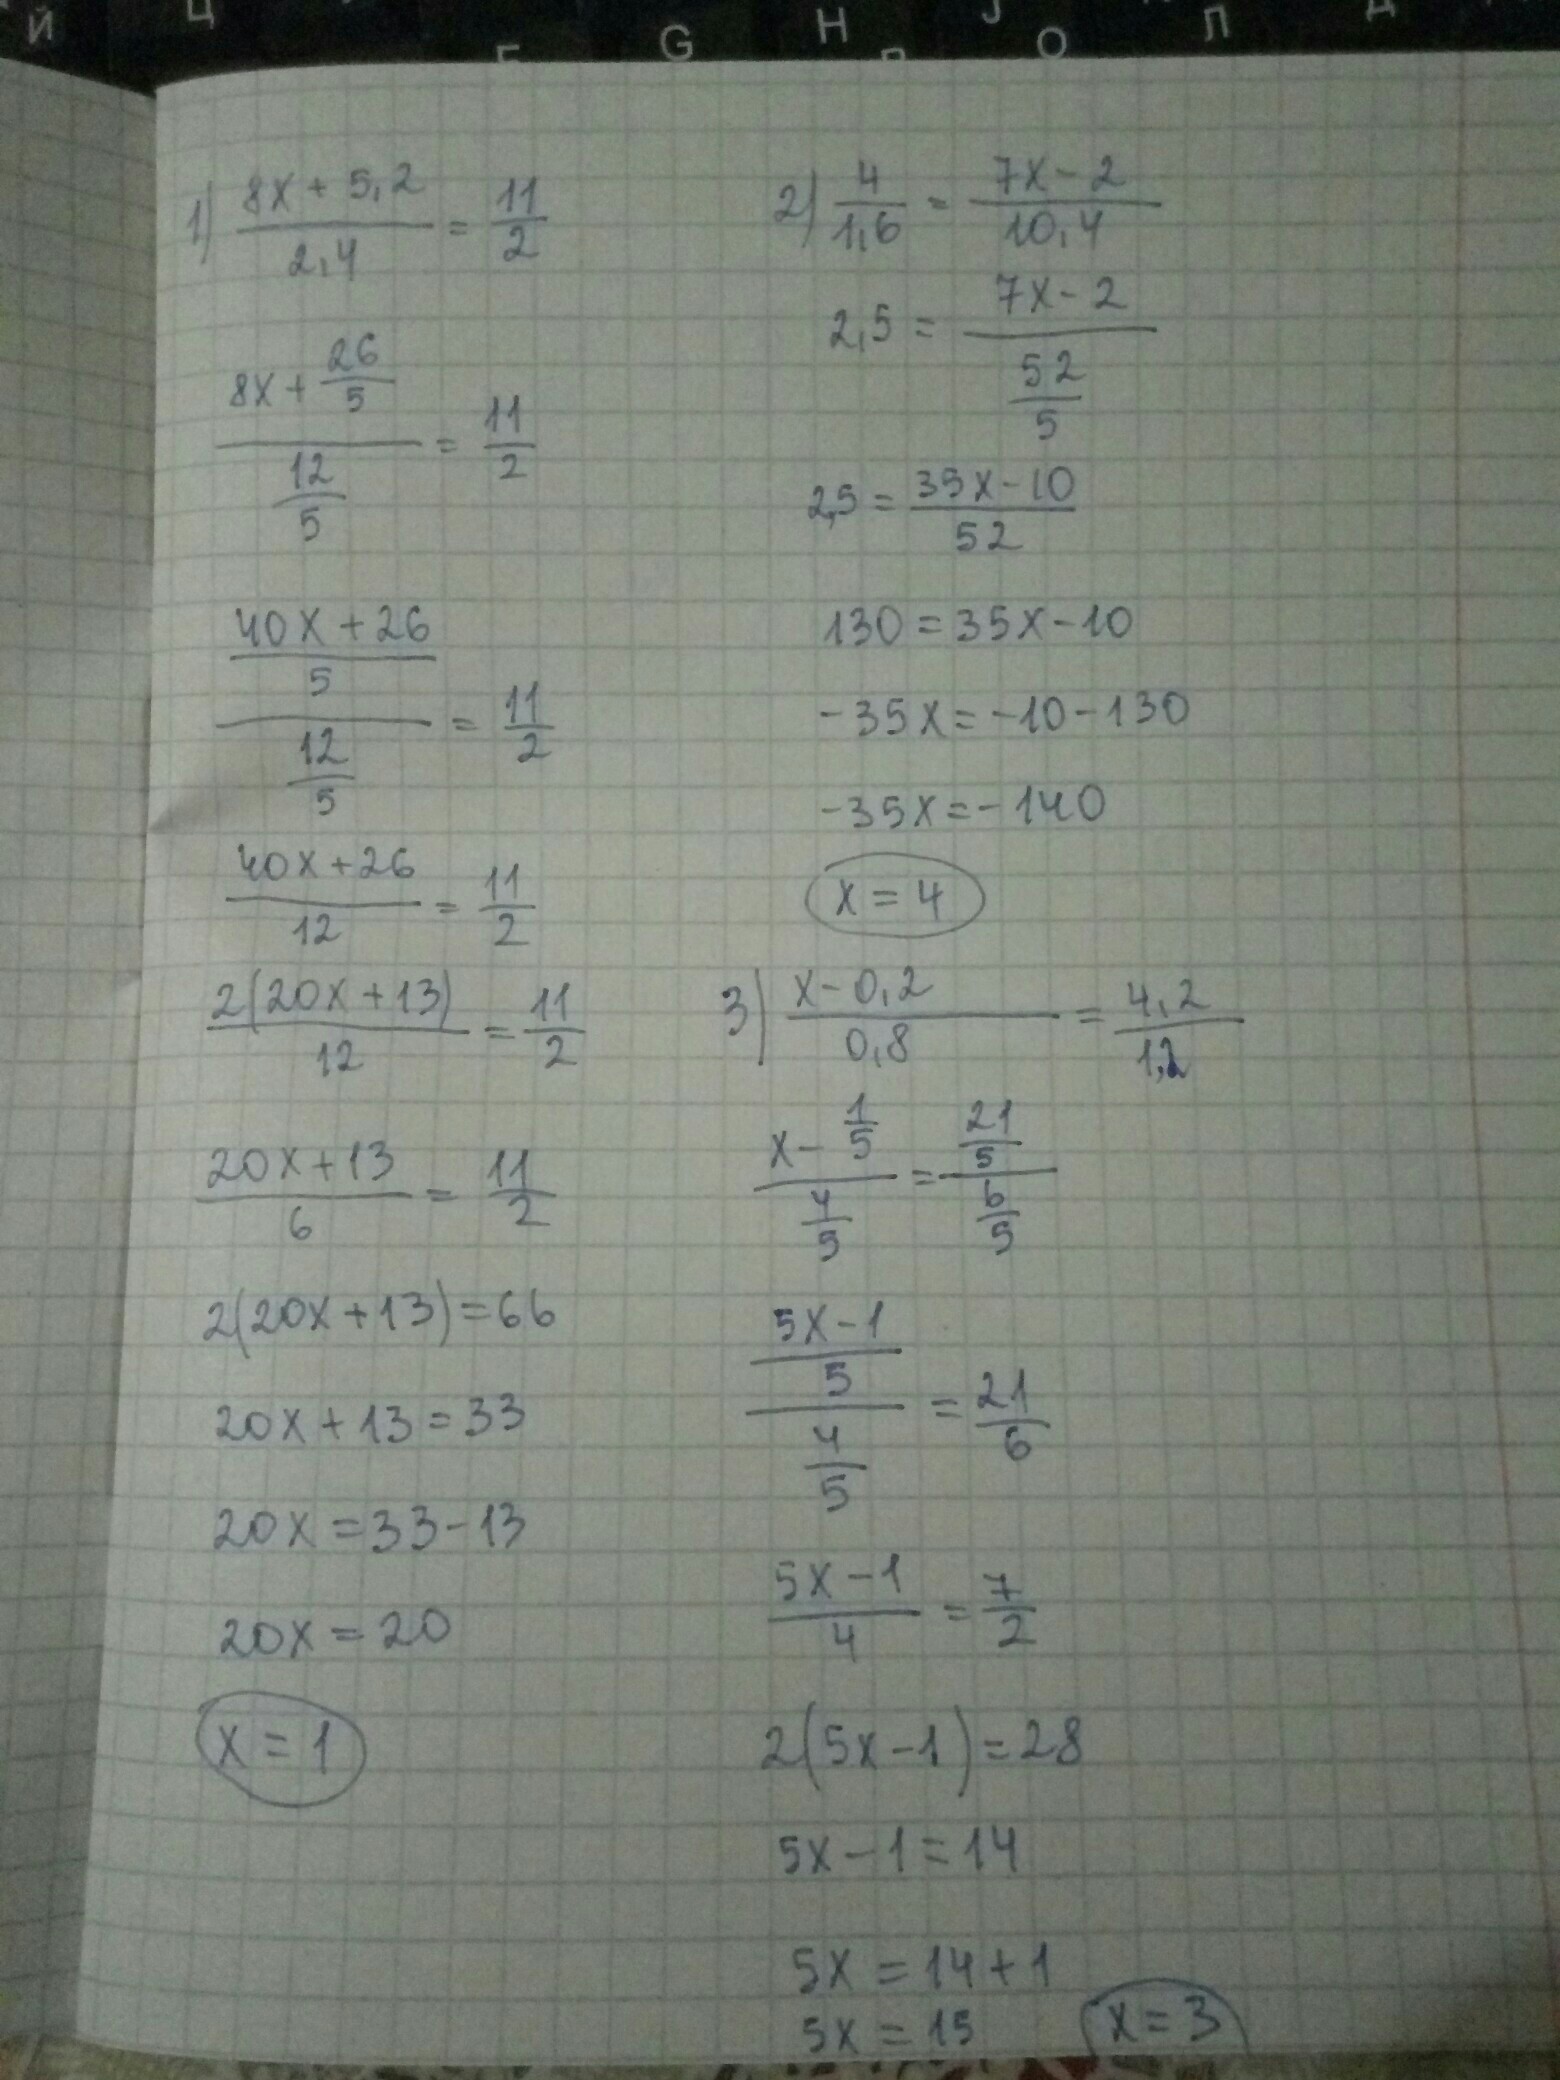 Й Ц G H J O Л
1) (8x + 5,2)/2,4 = 11/2
(8x + 26/5)/(12/5) = 11/2
((40x + 26)/5)/(12/5) = 11/2
(40x + 26)/12 = 11/2
2(20x + 13)/12 = 11/2
(20x + 13)/6 = 11/2
2(20x + 13) = 66
20x + 13 = 33
20x = 33 - 13
20x = 20
x = 1
2) 4/1,6 = (7x - 2)/10,4
2,5 = (7x - 2)/(52/5)
2,5 = (35x - 10)/52
130 = 35x - 10
-35x = -10 - 130
-35x = -140
x = 4
3) (x - 0,2)/0,8 = 4,2/1,2
(x - 1/5)/(4/5) = (21/5)/(6/5)
((5x - 1)/5)/(4/5) = 21/6
(5x - 1)/4 = 7/2
2(5x - 1) = 28
5x - 1 = 14
5x = 14 + 1
5x = 15
x = 3